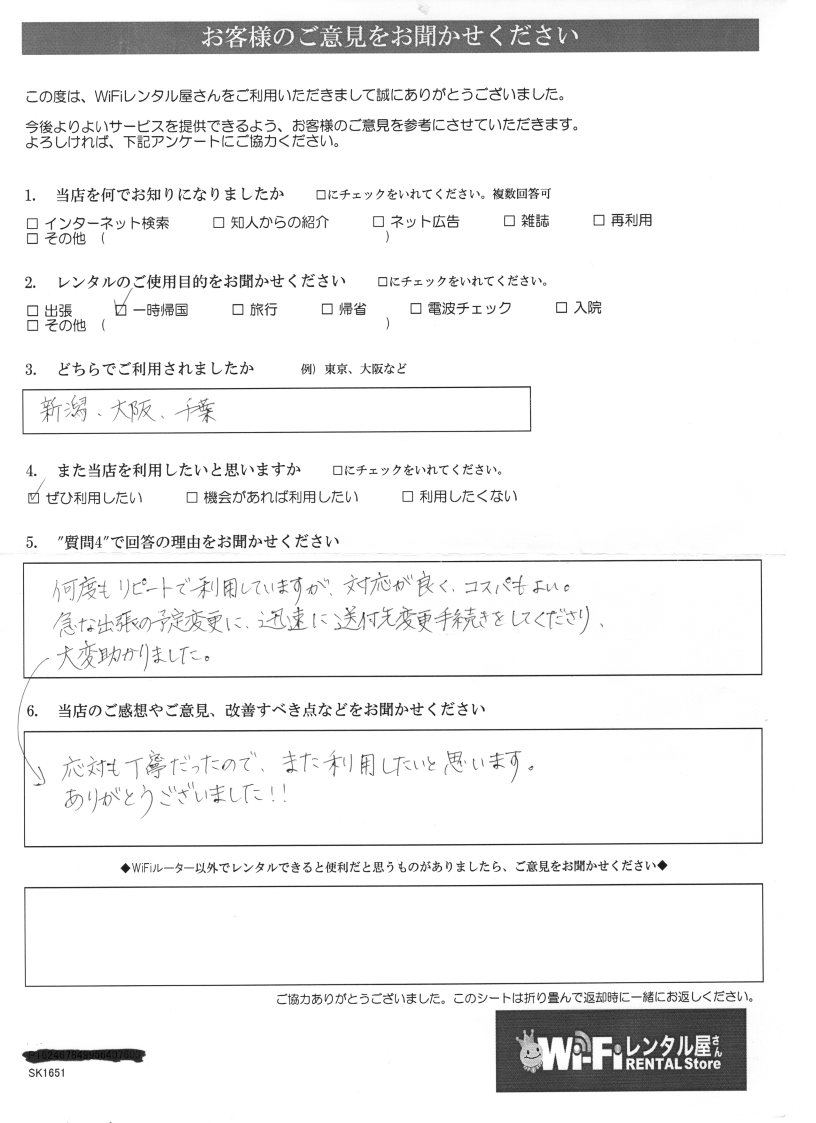 お客様のご意見をお聞かせください
この度は、WiFiレンタル屋さんをご利用いただきまして誠にありがとうございました。
今後よりよいサービスを提供できるよう、お客様のご意見を参考にさせていただきます。
よろしければ、下記アンケートにご協力ください。
1. 当店を何でお知りになりましたか □にチェックをいれてください。複数回答可
□ インターネット検索 □ 知人からの紹介 □ ネット広告 □ 雑誌 □ 再利用
□ その他 ( )
2. レンタルのご使用目的をお聞かせください □にチェックをいれてください。
□ 出張 ☑ 一時帰国 □ 旅行 □ 帰省 □ 電波チェック □ 入院
□ その他 ( )
3. どちらでご利用されましたか 例）東京、大阪など
新潟、大阪、千葉
4. また当店を利用したいと思いますか □にチェックをいれてください。
☑ ぜひ利用したい □ 機会があれば利用したい □ 利用したくない
5. "質問4"で回答の理由をお聞かせください
何度もリピートで利用していますが、対応が良く、コスパもよい。
急な出張の予定変更に、迅速に送付先変更手続きをしてくださり、
大変助かりました。
6. 当店のご感想やご意見、改善すべき点などをお聞かせください
応対も丁寧だったので、また利用したいと思います。
ありがとうございました!!
◆WiFiルーター以外でレンタルできると便利だと思うものがありましたら、ご意見をお聞かせください◆
ご協力ありがとうございました。このシートは折り畳んで返却時に一緒にお返しください。
SK1651
Wi-Fiレンタル屋さん
RENTAL Store